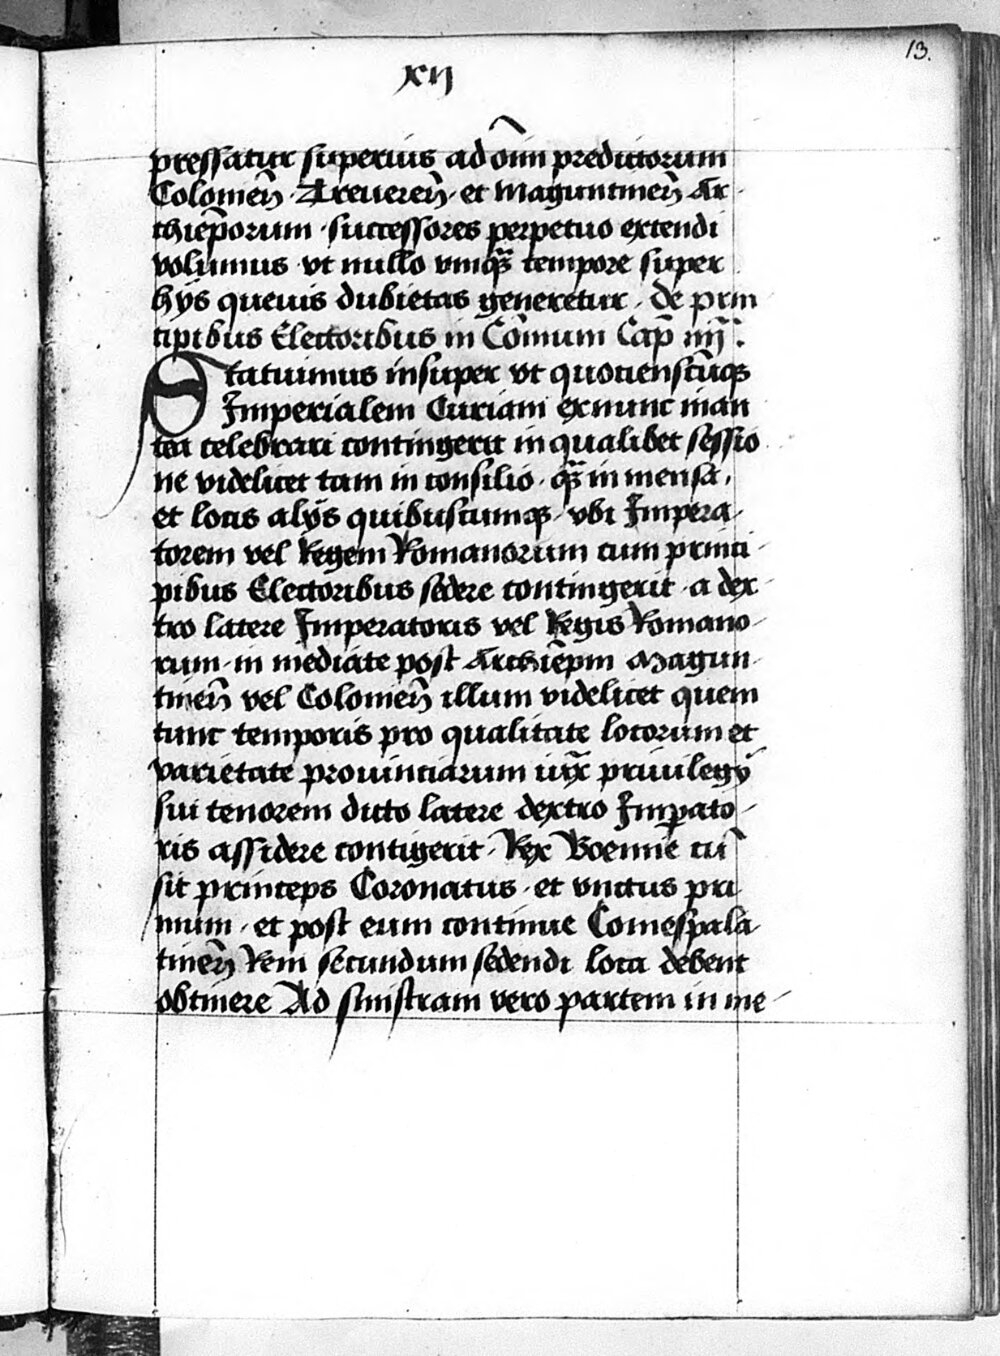 13.
xij
pressatur superius ad om̄i predictorum
Coloniēn Treuereñ et Maguntineñ Ar
chiep̄orum successores perpetuo extendi
volumus vt nullo vmqꝫ tempore super
hijs queuis dubietas generetur de prin
cipibus Electoribus in Cōmuni Cap̄ iiij
Statuimus insuper vt quotienscūqꝫ
Imperialem Curiam exnunc inan
tea celebrari contingerit in qualibet sessio
ne videlicet tam in consilio qꝫ in mensa
et locis alijs quibuscumqꝫ vbi Impera
torem vel Regem Romanorum cum princi
pibus Electoribus sedere contingerit a dex
tro latere Imperatoris vel Regis Romano
rum in mediate post Archiep̄m Magun
tineñ vel Colonieñ illum videlicet quem
tunc temporis pro qualitate locorum et
varietate prouinciarum iuꝫ priuilegij
sui tenorem dicto latere dextro Imꝑato
ris assidere contigerit Rex Boemie cū
sit princeps Coronatus et vnctus pri
mum et post eum continue Comespala
tineñ Reni secundum sedendi loca debent
obtinere Ad sinistram vero partem in me